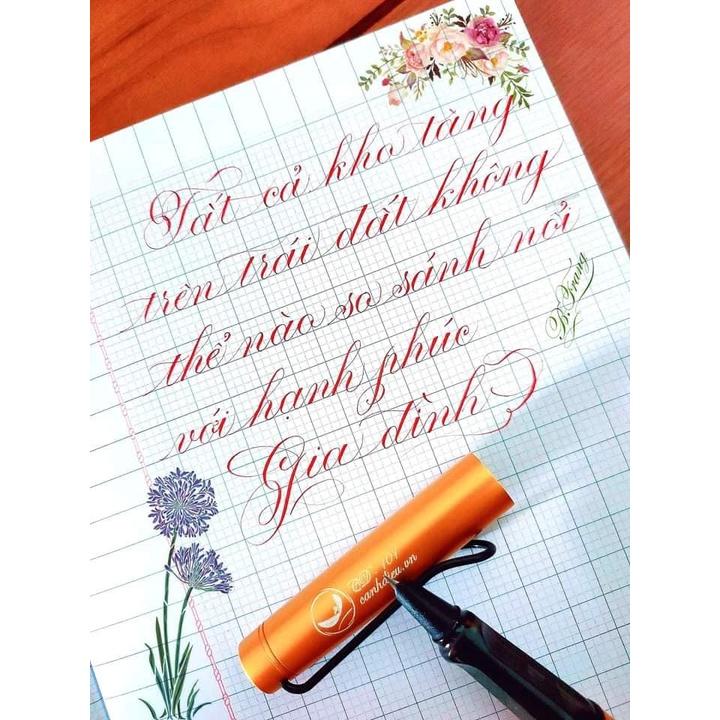 Tất cả kho tàng
trên trái đất không
thể nào so sánh nổi
với hạnh phúc
Gia đình
Đ. Trang
CD 101
canhdieu.vn